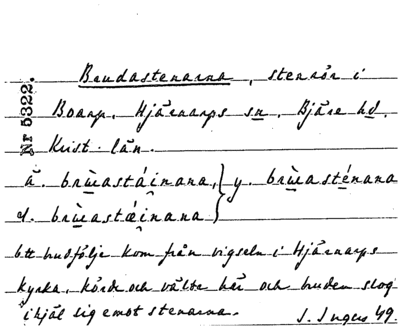 Nr 5322.
Brudastenarna, stenrör i
Boarp, Hjärnarps sn. Bjäre hd.
Krist. län.
ä. brùastáinana, } y. brùasténana
d. brùastæinana
Ett brudfölje kom från vigseln i Hjärnarps
kyrka, körde och välte här och bruden slog
ihjäl sig emot stenarna. S. Ingers 49.